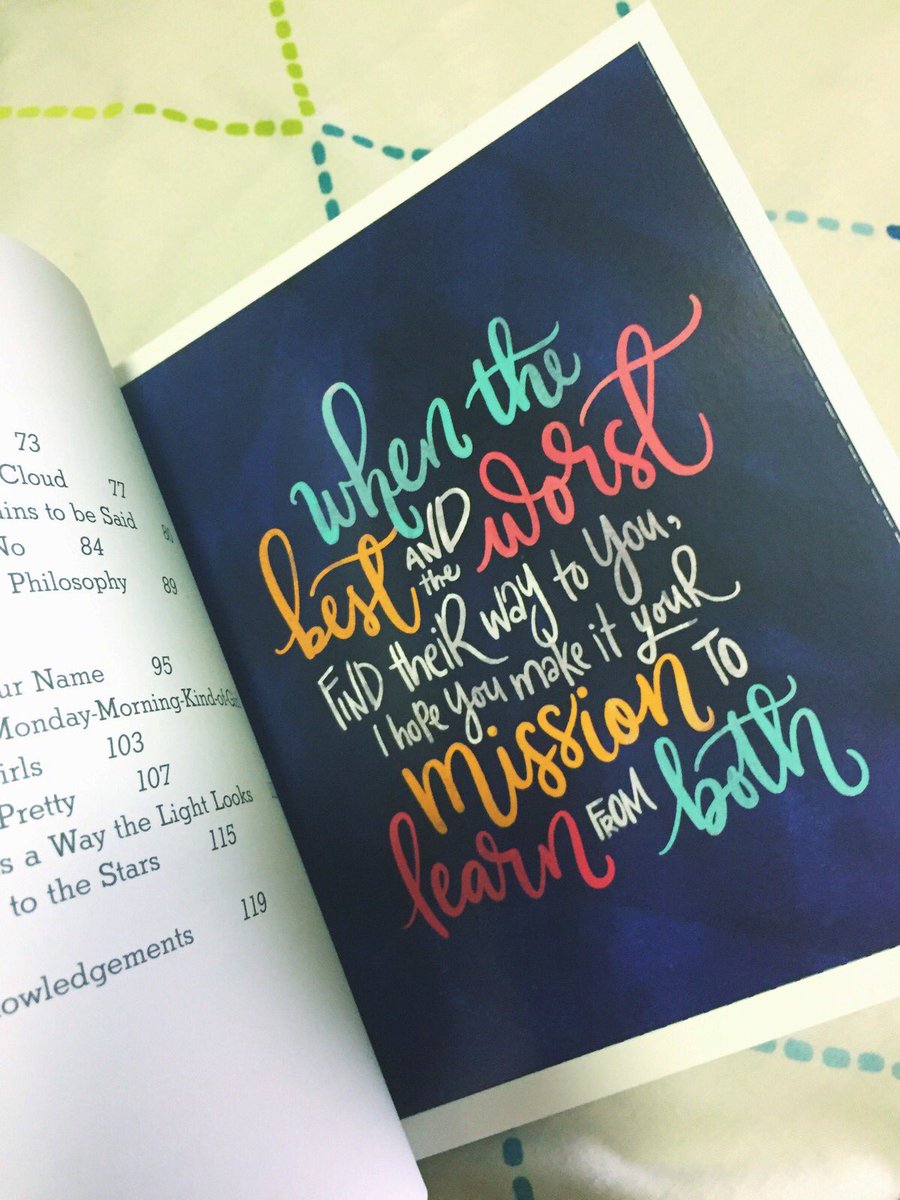 73
Cloud 77
to be Said 80
No 84
Philosophy 89
Name 95
Monday-Morning-Kind-of-
103
Pretty 107
a Way the Light Looks
to the Stars 115
119
when the
best AND the worst
FIND theiR way to you,
I hope you make it youR
mission TO
learn FROM both